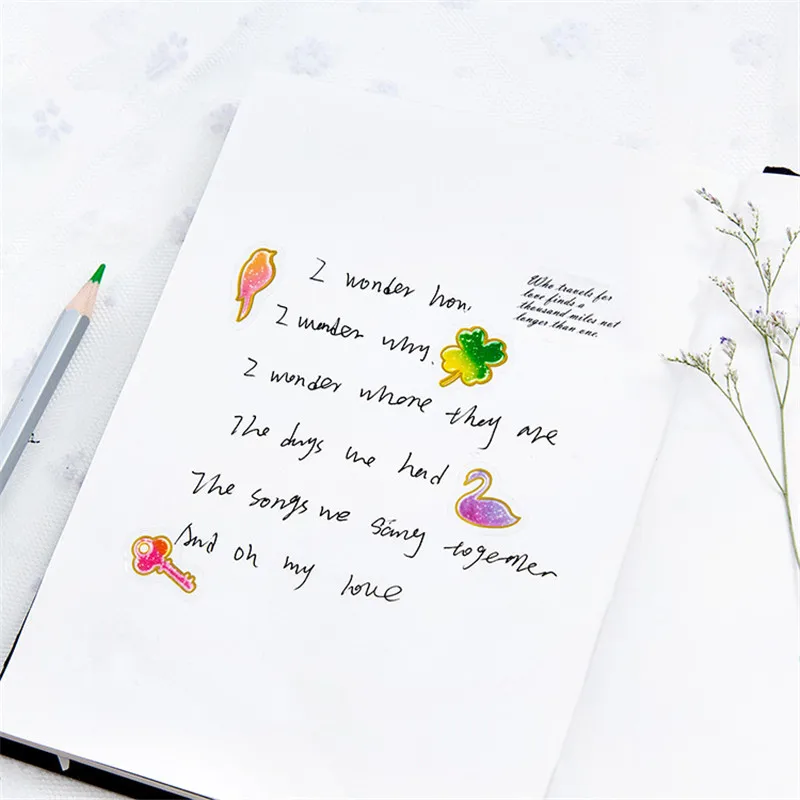 I wonder how
I wonder why.
I wonder where they are
The days we had
The songs we sang together
And oh my love
Who travels for
love finds a
thousand miles not
longer than one.